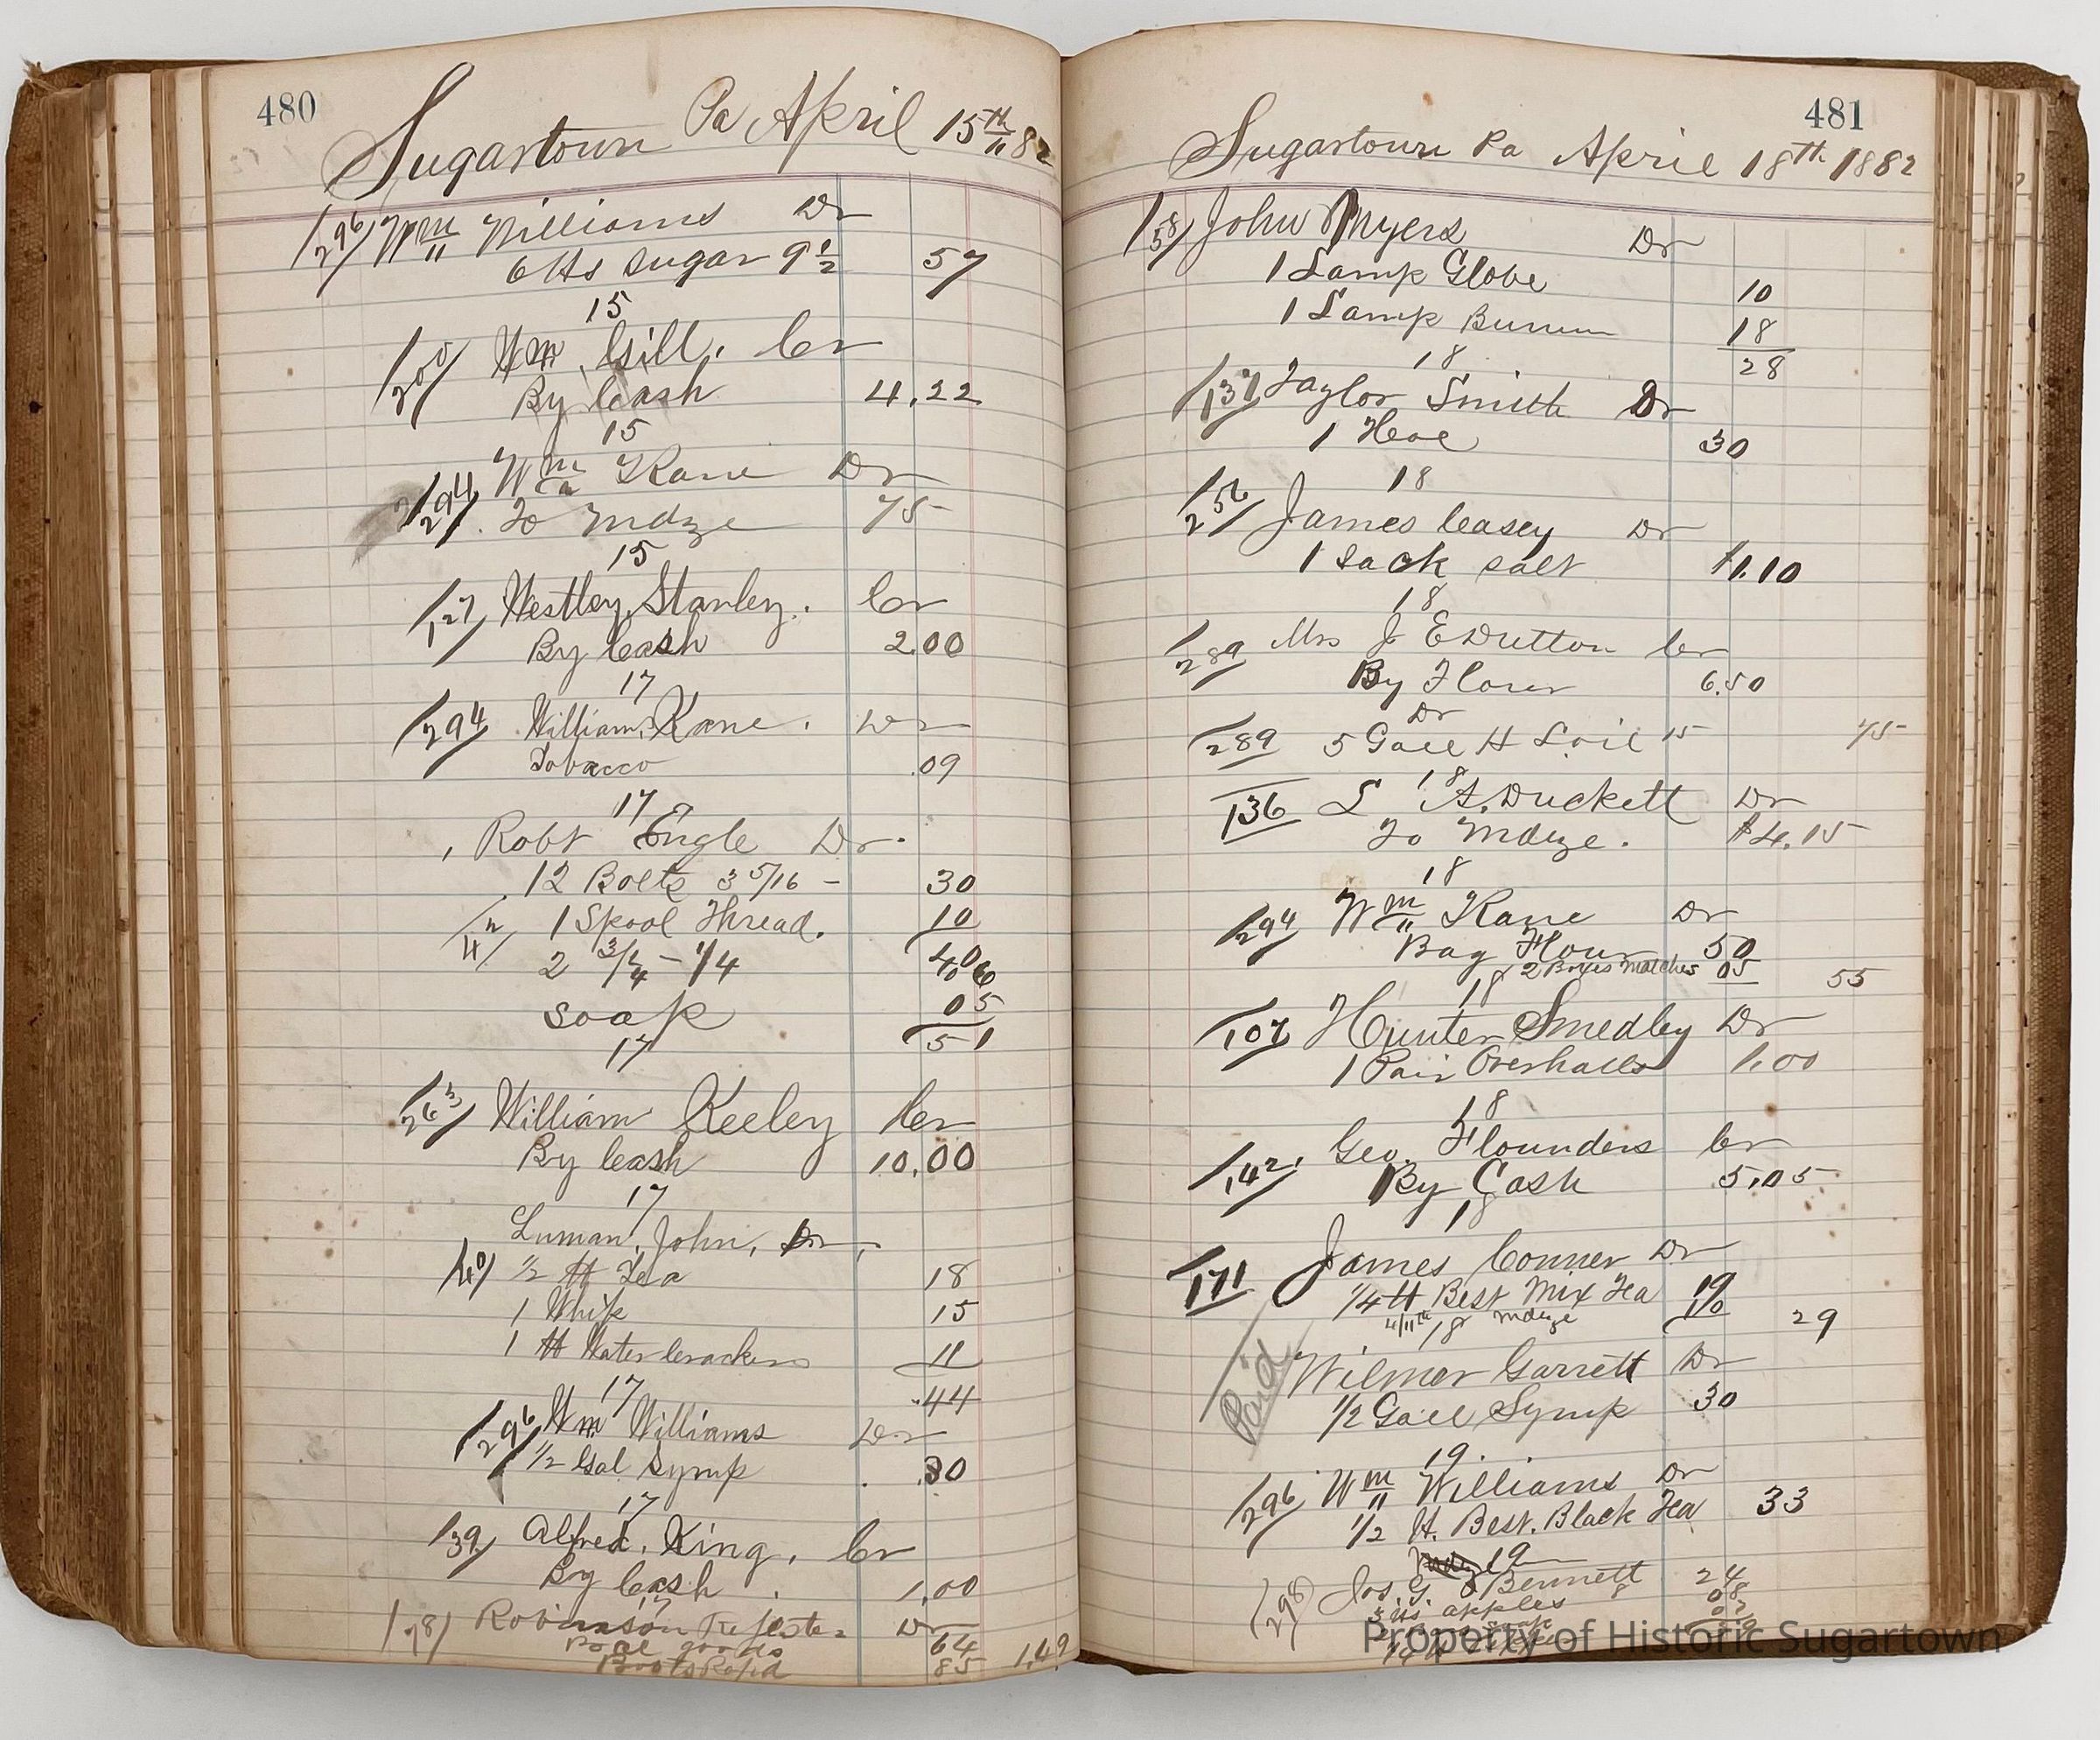 480
Sugartown Pa April 15th 82
296 Wm Williams Dr
6 lbs sugar 9 1/2 57
15
200 Wm Gill. Cr
By Cash 4.22
15
Wm Kane Dr
294 To Mdze 75
15
127 Westley Stanley. Cr
By Cash 2.00
17
294 William Kane. Dr
Tobacco .09
17
Robt Engle Dr.
12 Bolts 3 5/16 - 30
1 Spool Thread. 10
2 3/4 - 1/4 40 06
soap 05
51
17
263 William Keeley Cr
By Cash 10.00
17
Luman, John, Dr
40 1/2 lb Tea 18
1 Whip 15
1 lb Water Crackers 11
17 .44
296 Wm Williams Dr
1/2 Gal Syrup .30
17
39 Alfred. King. Cr
By Cash 1.00
17
78 Robinson Dr
goods 64
Boots Repd 85 1.49
481
Sugartown Pa April 18th 1882
58 John Myers Dr
1 Lamp Globe 10
1 Lamp Burner 18
18 28
137 Taylor Smith Dr
1 Hoe 30
18
256 James Casey Dr
1 Sack salt $1.10
18
289 Mrs J E Dutton Cr
By Flour 6.50
Dr
289 5 Gall H L oil 15 75
18
136 L A. Duckett Dr
To Mdze. $4.15
18
294 Wm Kane Dr
Bag Flour 50
18 2 Boxes matches 05 55
107 Hunter Smedley Dr
1 Pair Overhalls 1.00
18
142. Geo. Flounders Cr
By Cash 5.05
18
171 James Conner Dr
1/4 lb Best Mix Tea 19
4/11th Mdze 10 29
18
Paid Wilmer Garrett Dr
1/2 Gall Syrup 30
19.
296 Wm Williams Dr
1/2 lb. Best. Black Tea 33
19
298 Jos. G Bennett 24
3 lbs. apples 8 08
Property of Historic Sugartown